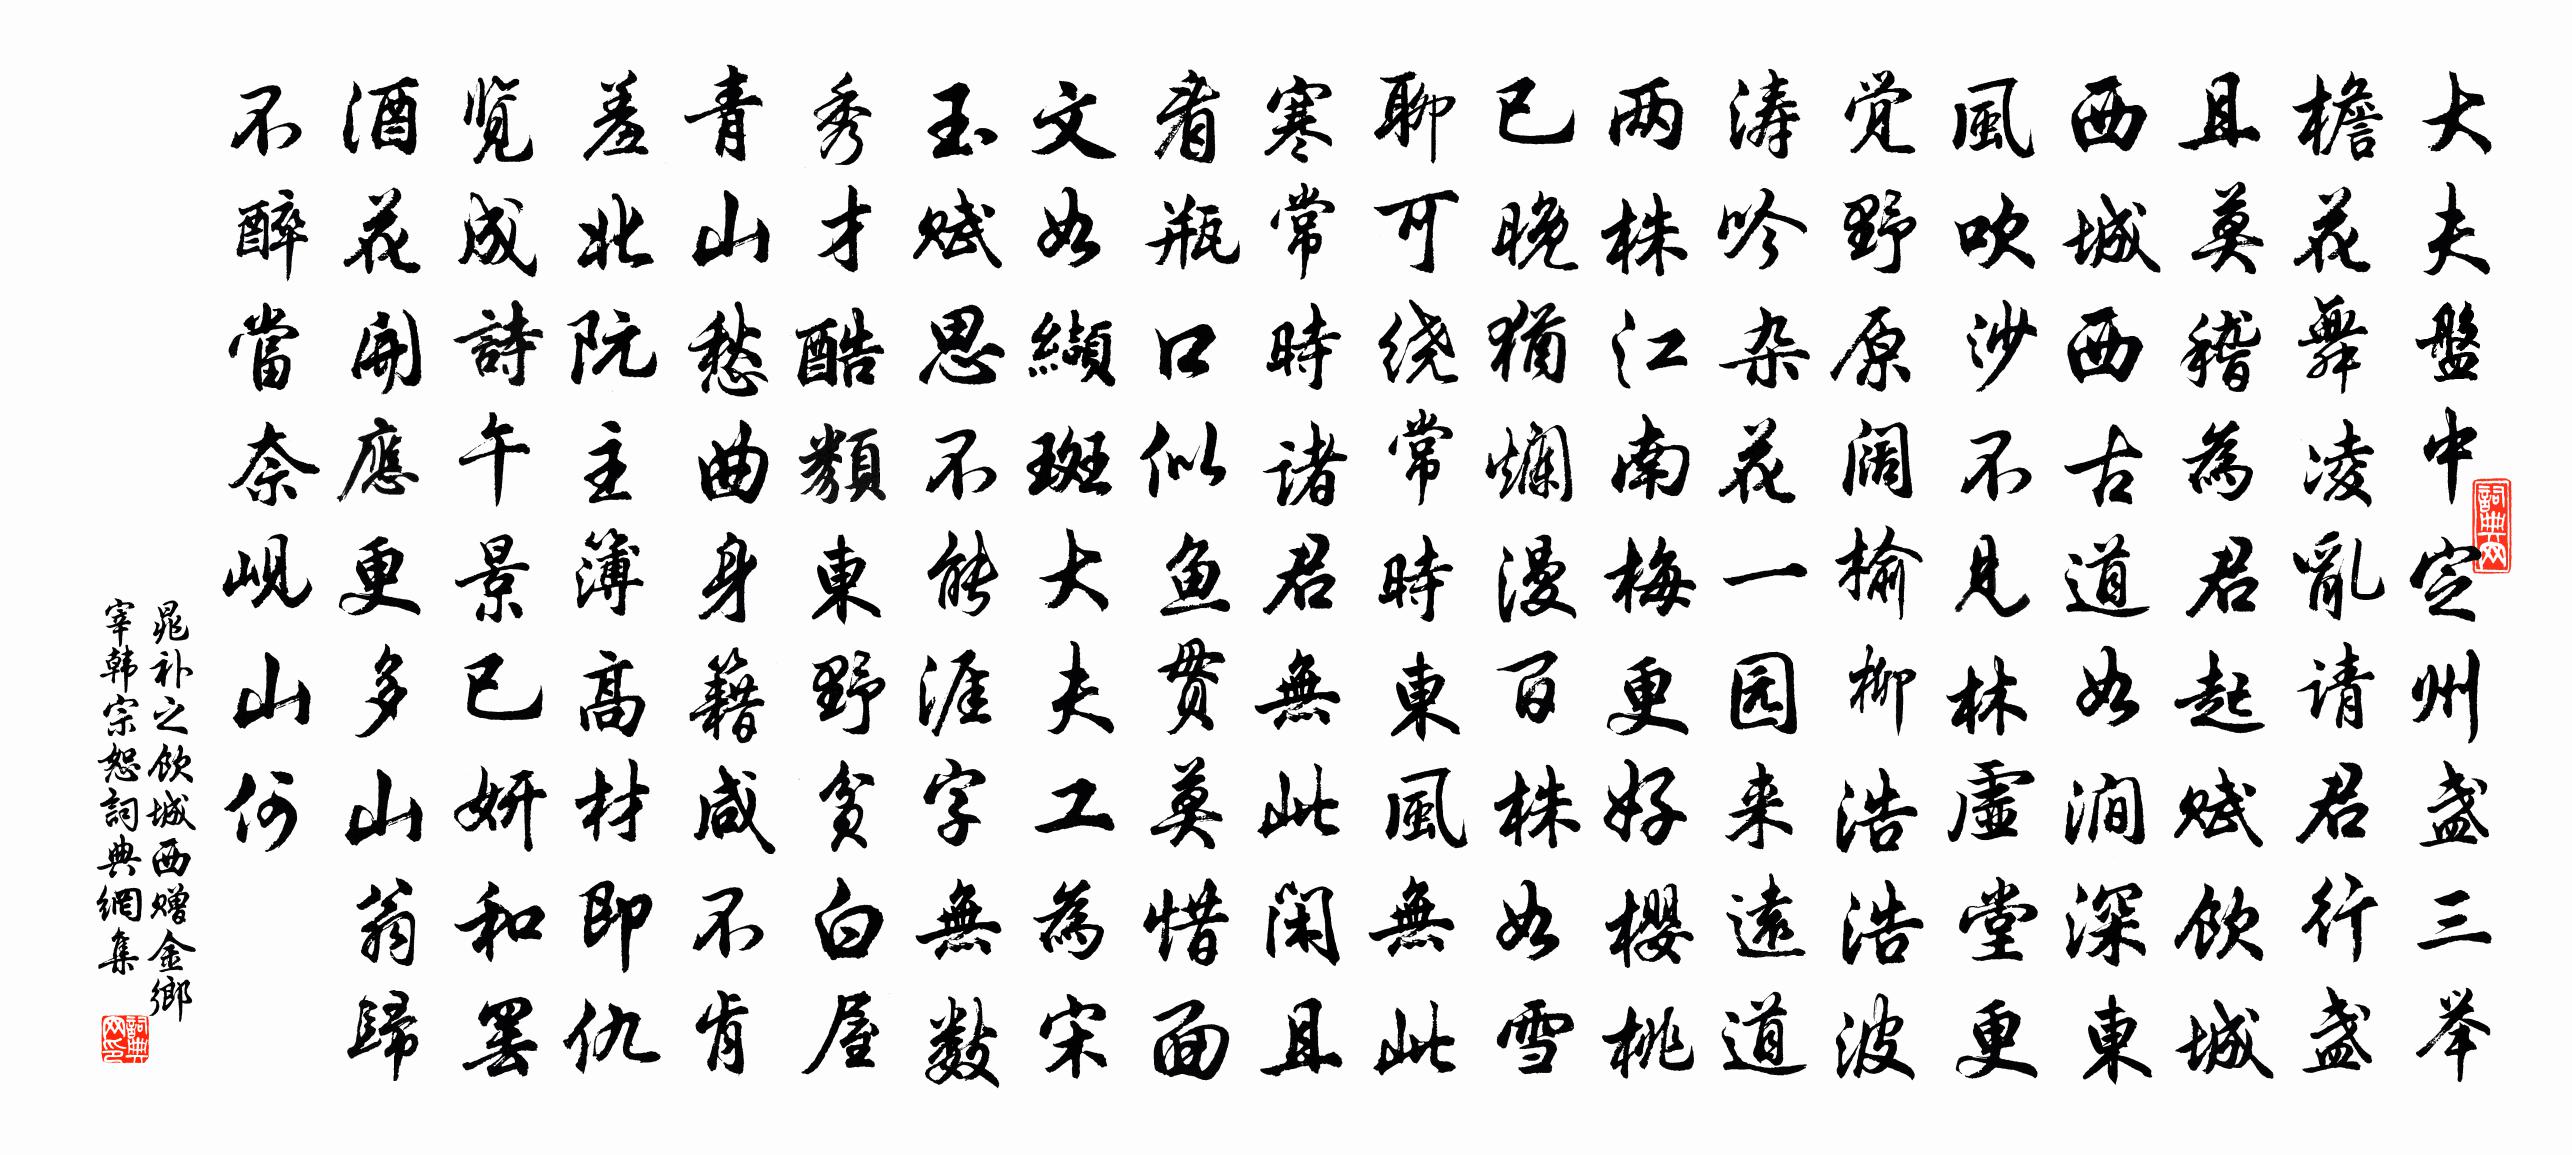 大夫盤中定州盏三举
檐花舞凌亂请君行盏
且莫稽為君起赋飲城
西城西古道如澗深東
風吹沙不見林虚堂更
觉野原阔榆柳浩浩波
涛吟杂花一园来遠道
两株江南梅更好櫻桃
已晚猶爛漫百株如雪
聊可绕常時東風無此
寒常時诸君無此闲且
看瓶口似鱼贯莫惜面
文如纈斑大夫工為宋
玉赋思不能涯字無数
秀才酷類東野贫白屋
青山愁曲身籍咸不肯
羞北阮主簿高材即仇
览成詩午景已妍和罢
酒花開應更多山翁歸
不醉當奈岘山何
晁补之飲城西赠金鄉
宰韩宗恕詞典網集
詞典网
詞典网印